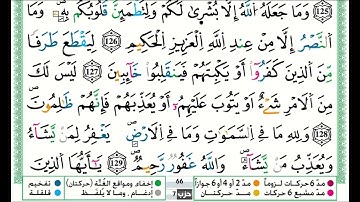 ١٢٥ وَمَا جَعَلَهُ اللَّهُ إِلَّا بُشْرَىٰ لَكُمْ وَلِتَطْمَئِنَّ قُلُوبُكُم بِهِ وَمَا
النَّصْرُ إِلَّا مِنْ عِندِ اللَّهِ الْعَزِيزِ الْحَكِيمِ ١٢٦ لِيَقْطَعَ طَرَفًا
مِّنَ الَّذِينَ كَفَرُوا أَوْ يَكْبِتَهُمْ فَيَنقَلِبُوا خَائِبِينَ ١٢٧ لَيْسَ لَكَ
مِنَ الْأَمْرِ شَيْءٌ أَوْ يَتُوبَ عَلَيْهِمْ أَوْ يُعَذِّبَهُمْ فَإِنَّهُمْ ظَالِمُونَ
١٢٨ وَلِلَّهِ مَا فِي السَّمَاوَاتِ وَمَا فِي الْأَرْضِ يَغْفِرُ لِمَن يَشَاءُ
وَيُعَذِّبُ مَن يَشَاءُ وَاللَّهُ غَفُورٌ رَّحِيمٌ ١٢٩ يَا أَيُّهَا الَّذِينَ
66
مدّ 6 حركات لزوماً مدّ 2 أو 4 أو 6 جوازاً إخفاء ومواقع الغُنَّة (حركتان) تفخيم
مدّ مشبع 6 حركات مدّ حركتان حزب 7 إدغام، وما لا يُلفَظ قلقلة